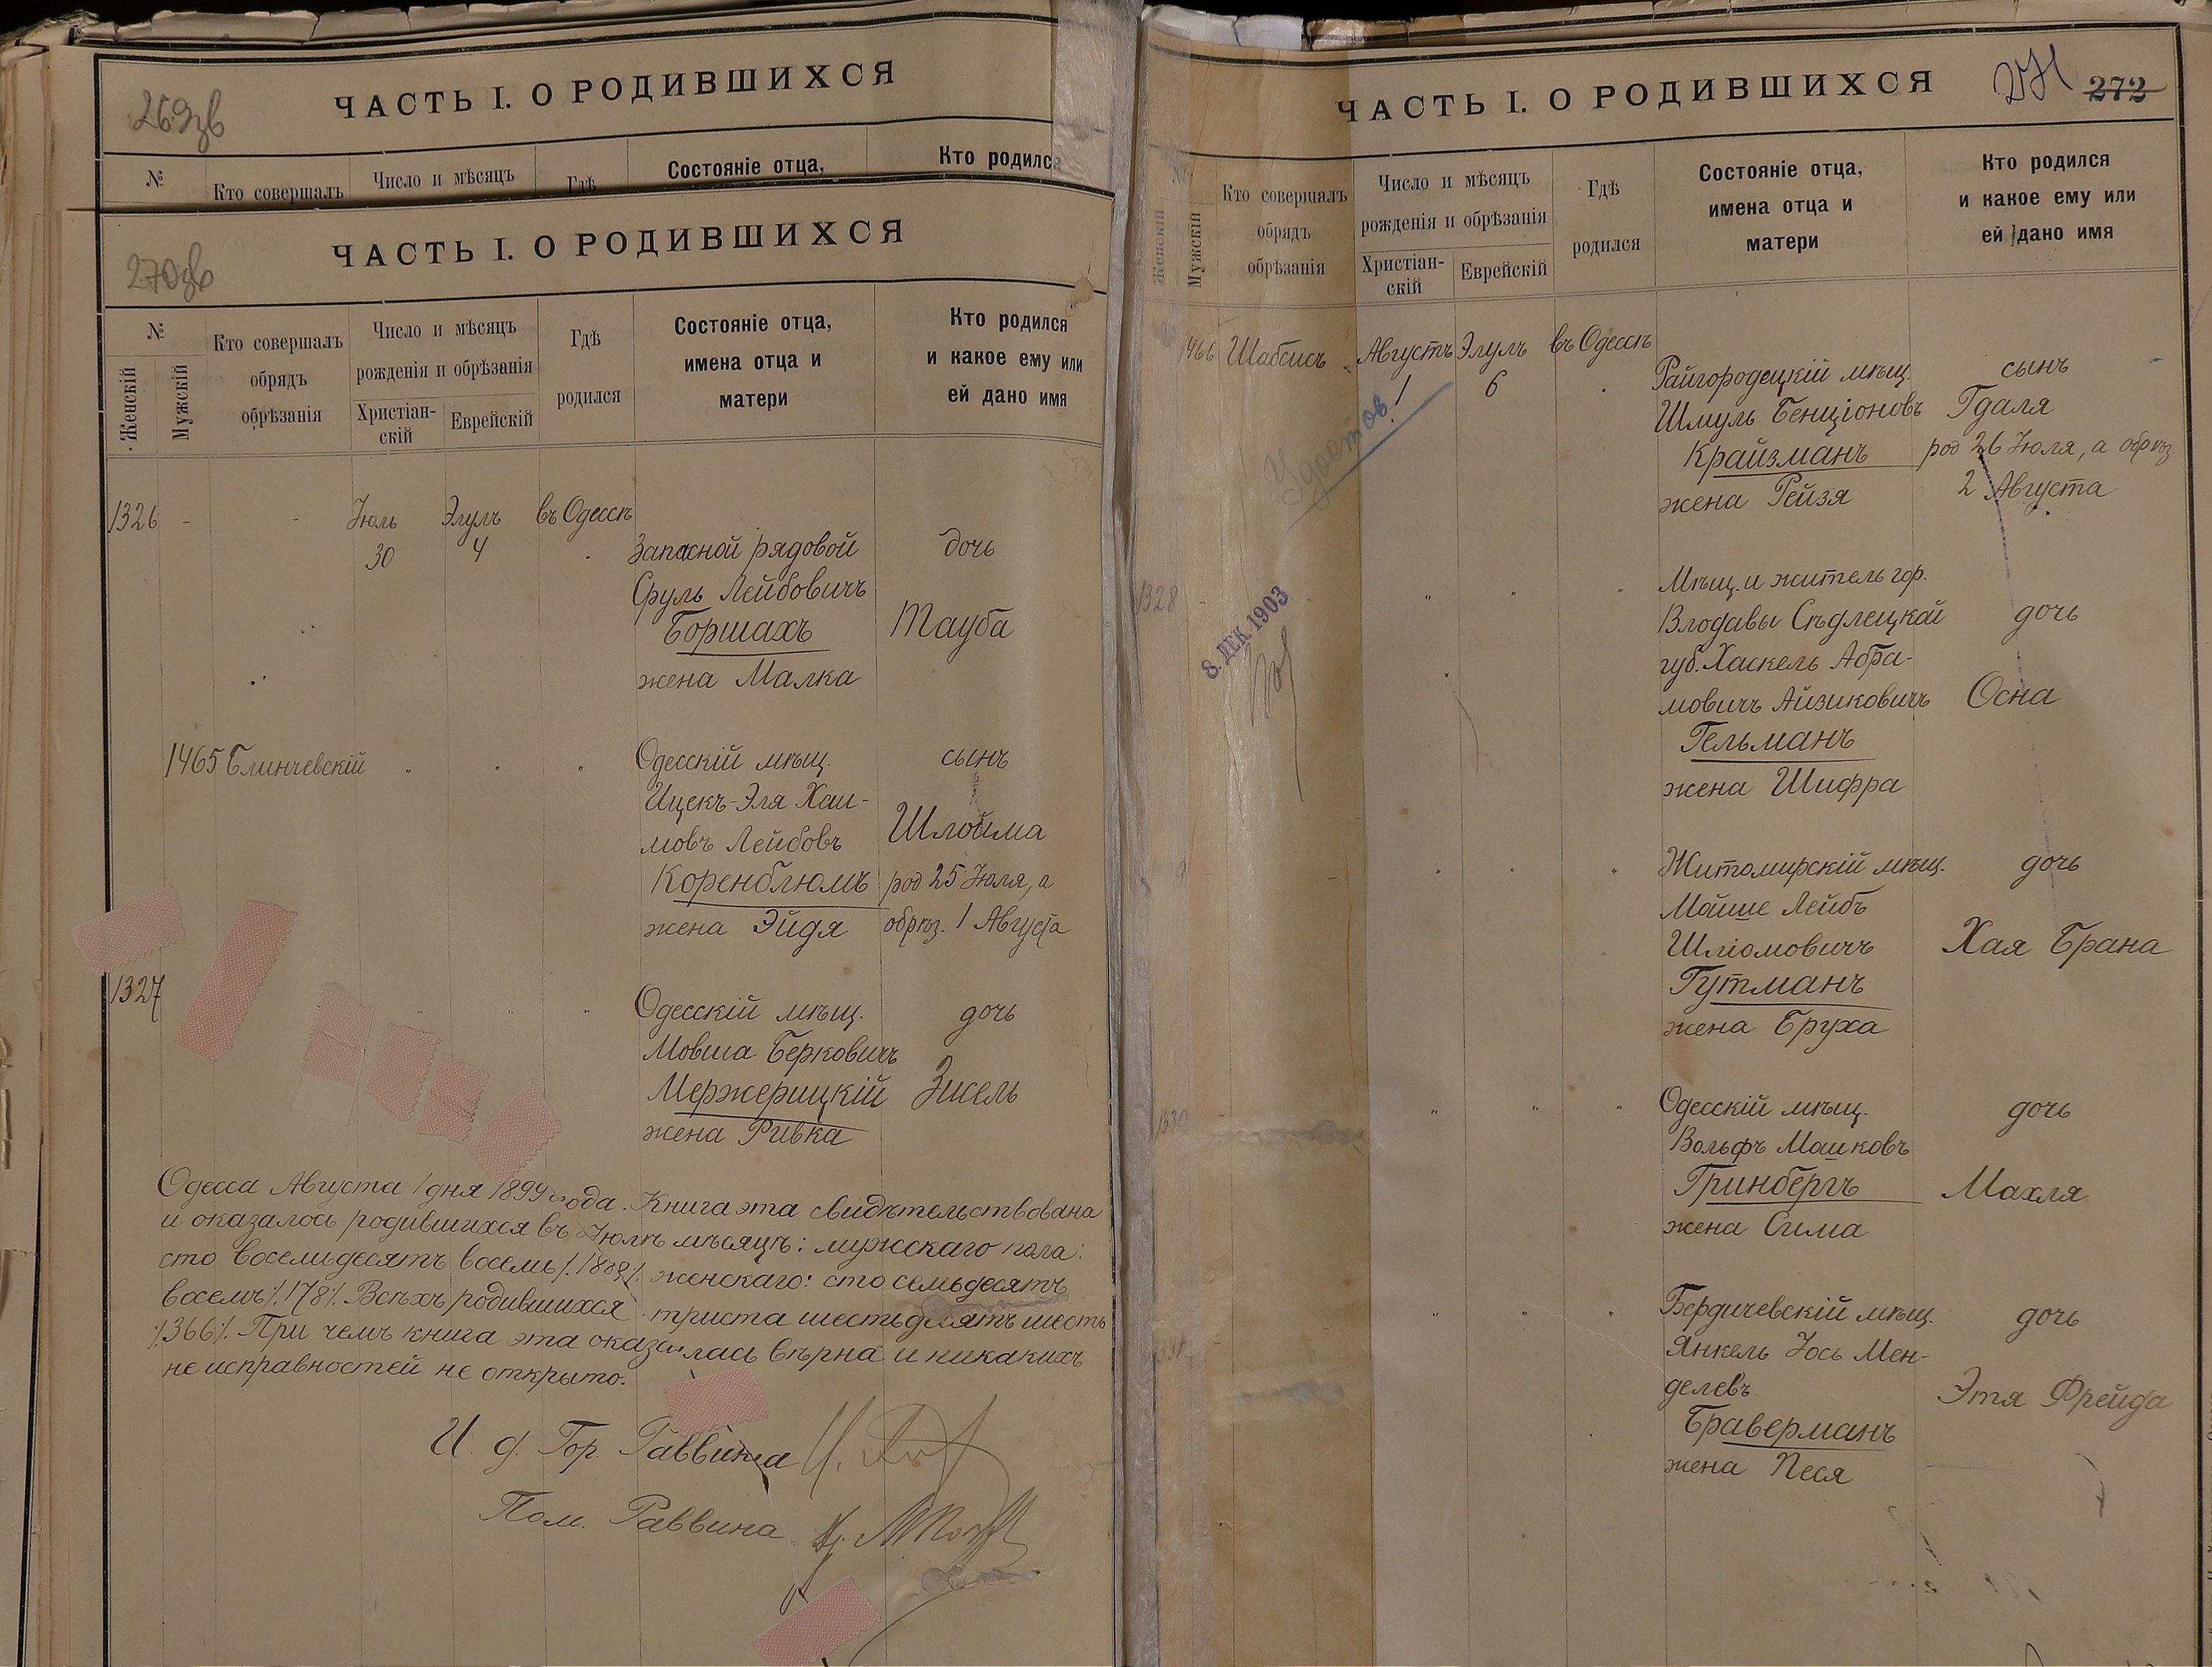 ЧАСТЬ I. О РОДИВШИХСЯ
269зв
№
Кто совершалъ
Число и мѣсяцъ
Гдѣ
Состоянiе отца,
Кто родился
ЧАСТЬ I. О РОДИВШИХСЯ
270зв
№
Женскiй
Мужскiй
Кто совершалъ
обрядъ
обрѣзанiя
Число и мѣсяцъ
рожденiя и обрѣзанiя
Христiан-
скiй
Еврейскiй
Гдѣ
родился
Состоянiе отца,
имена отца и
матери
Кто родился
и какое ему или
ей дано имя
1326 - - Iюль Элулъ въ Одессѣ
30 4 Запасной рядовой дочь
Сруль Лейбовичъ
Боршахъ Тауба
жена Малка
1465 Блинчевскiй " " " Одесскiй мѣщ. сынъ
Ицекъ-Эля Хаи-
мовъ Лейбовъ Шлойма
Коренблюмъ род 25 Iюля, а
жена Эйдя обрѣз. 1 Августа
1327 " " " Одесскiй мѣщ. дочь
Мовша Берковичъ
Мержерицкiй Зисель
жена Ривка
Одесса Августа 1 дня 1899 года. Книга эта свидѣтельствована
и оказалось родившихся въ Iюлѣ мѣсяцѣ: мужскаго пола:
сто восемьдесятъ восемь /.188/. женскаго: сто семьдесятъ
восемь /.178/. Всѣхъ родившихся триста шестьдесятъ шесть
/.366/. При чемъ книга эта оказалась вѣрна и никакихъ
не исправностей не открыто.
И. д. Гор. Раввина
Пом. Раввина
ЧАСТЬ I. О РОДИВШИХСЯ
271 272
№
Женскiй
Мужскiй
Кто совершалъ
обрядъ
обрѣзанiя
Число и мѣсяцъ
рожденiя и обрѣзанiя
Христiан-
скiй
Еврейскiй
Гдѣ
родился
Состоянiе отца,
имена отца и
матери
Кто родился
и какое ему или
ей дано имя
1466 Шабсисъ Августъ Элулъ въ Одессѣ
1 6 Райгородецкiй мѣщ. сынъ
Шмуль Бенцiоновъ Гдаля
Крайзманъ род 26 Iюля, а обрѣз
жена Рейзя 2 Августа
Удостов.
1328 - " " " Мѣщ. и житель гор.
Влодавы Сѣдлецкой дочь
губ. Хаскель Абра-
мовичъ Айзиковичъ Осна
Гельманъ
жена Шифра
8. ДЕК 1903
" " " Житомирскiй мѣщ. дочь
Мойше Лейбъ
Шлiомовичъ Хая Брана
Гутманъ
жена Бруха
1330 - " " " Одесскiй мѣщ. дочь
Вольфъ Машковъ
Гринбергъ Махля
жена Сима
" " " Бердичевскiй мѣщ. дочь
Янкель Iось Мен-
делевъ Этя Фрейда
Браверманъ
жена Песя